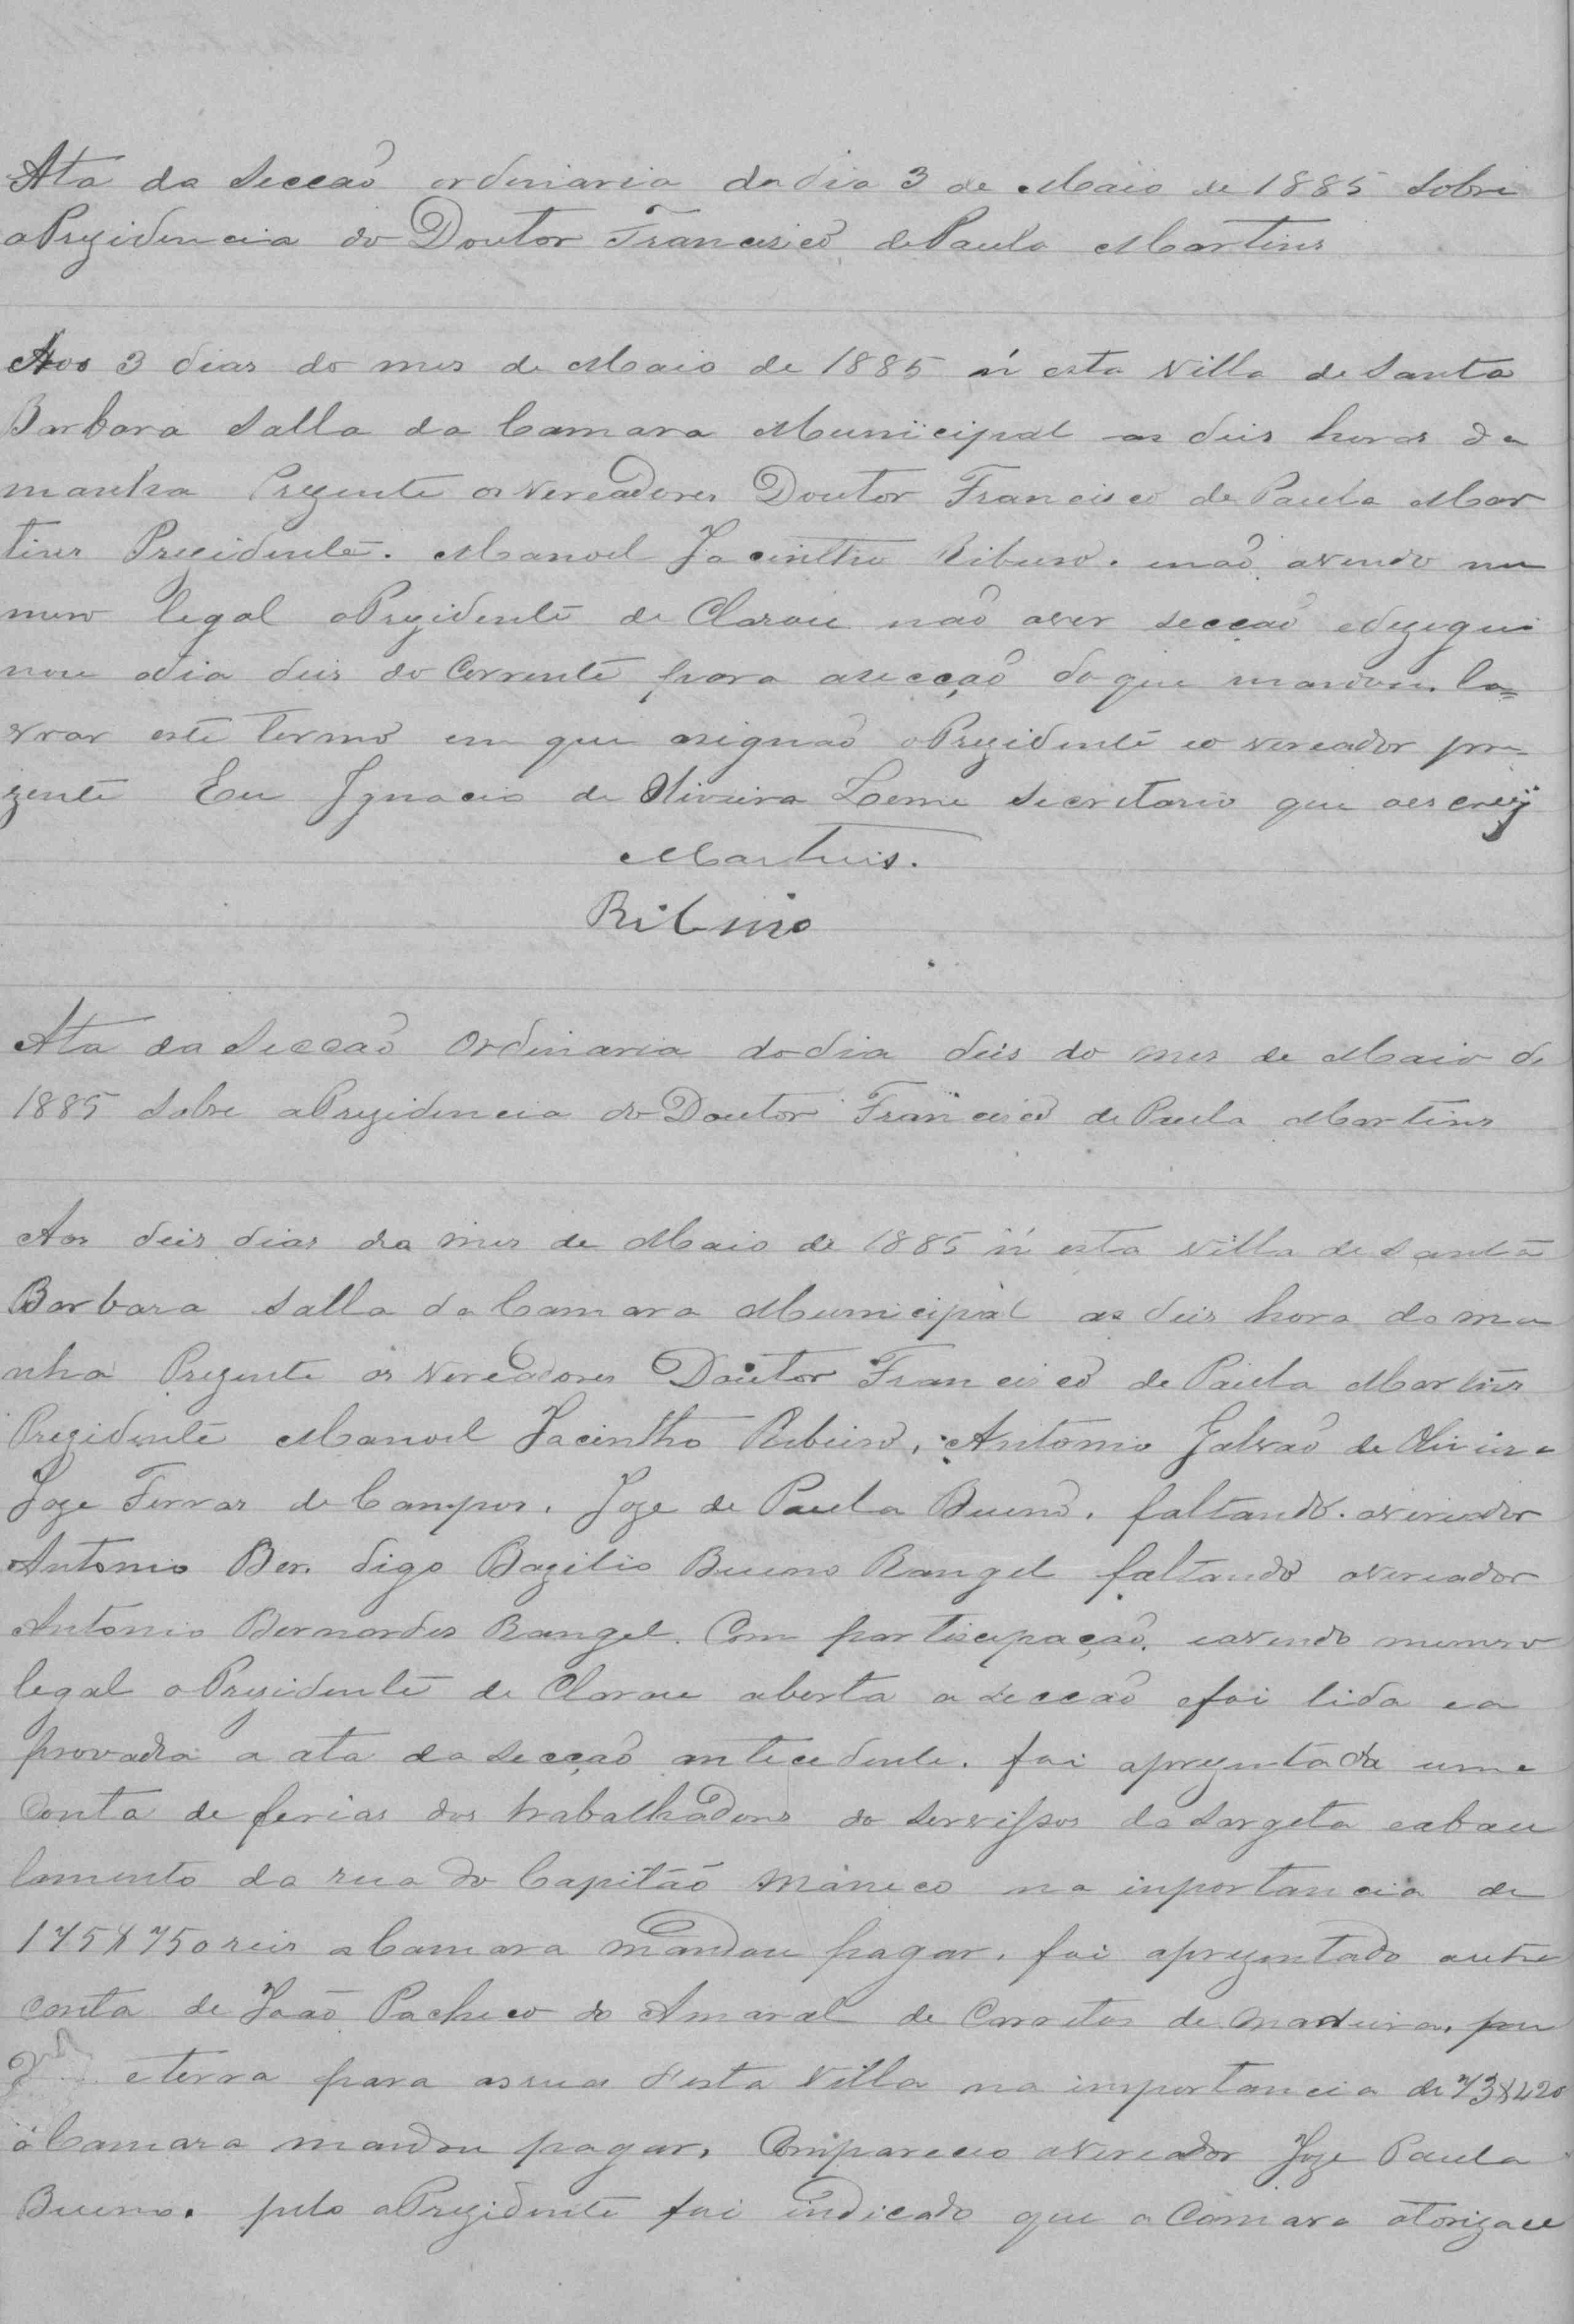 Ata da Secçaõ ordinaria do dia 3 de Maio de 1885 Sobre
aPrezidencia do Doutor Francisco de Paula Martins
Aos 3 dias do mes de Maio de 1885 n'esta Villa de Santa
Barbara Salla da Camara Municipal as deis horas da
manha Prezente os Vereadores Doutor Francisco de Paula Mar
tins Prezidente. Manoel Jacintho Ribeiro. enaõ avendo nu
mero legal oPrezidente de Clarou naõ aver secçaõ edezegui
nou odia deis do Corrente para asecçaõ do que mandou. la=
vrar este termo em que asignaõ oPrezidente eo vereador pre-
zente Eu Ignacio de Oliveira Leme Secretario que oescrevy
Martins.
Ribeiro
Ata da Secçaõ Ordinaria do dia deis do mes de Maio de
1885 Sobre aPrezidencia do Doutor Francisco de Paula Martins
Aos deis dias do mes de Maio de 1885 n'esta Villa de Santa
Barbara Salla da Camara Municipal as deis hora da ma
nha Prezente os Vereadores Doutor Francisco de Paula Martins
Prezidente Manoel Jacintho Ribeiro, Antonio Galvaõ de Oliveira
Joze Ferras de Campos. Joze de Paula Bueno. faltando. overeador
Antonio Ber. digo Bazilio Bueno Rangel faltando overeador
Antonio Bernardes Rangel. Com partisipaçaõ. eavendo numero
legal oPrezidente de Clarou aberta a secçaõ efoi lida ea
provada a ata da secçaõ antecedente. foi aprezentada uma
Conta de ferias dos trabalhadores do servissos da sargeta eabau
lamento da rua do Capitão Maneco na inportancia de
175$750 reis aCamara mandou pagar. foi aprezentado outra
conta de João Pacheco do Amaral de Carretos de madeira. pe
eterra para asruas d'esta Villa na importancia de 73$420
aCamara mandou pagar. Compareceo overeador Joze Paula
Bueno. pelo oPrezidente foi indicado que a Camara atorizace